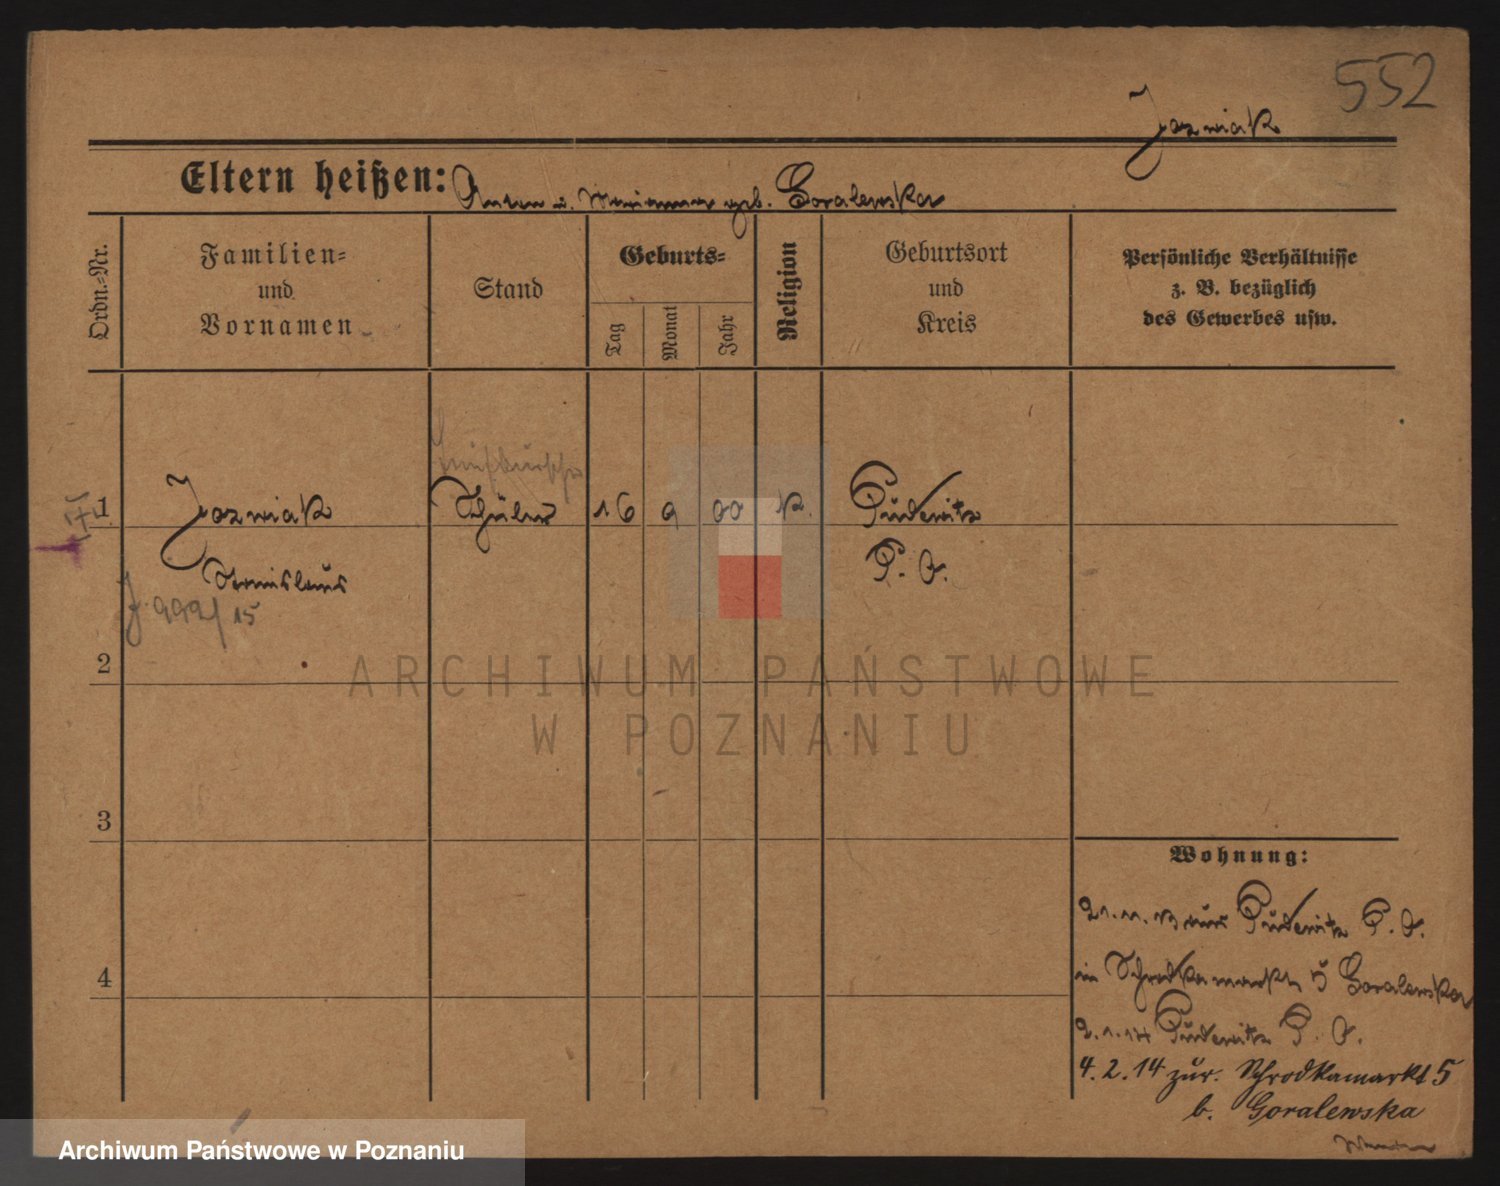 552
Jozwiak
Eltern heißen: Anton u. Marianna geb. Goralewska
Ordn.-Nr.
Familien-
und
Vornamen
Stand
Geburts-
Tag
Monat
Jahr
Religion
Geburtsort
und
Kreis
Persönliche Verhältnisse
z. B. bezüglich
des Gewerbes usw.
Laufbursche
1 Jozwiak Schüler 16 9 00 K. Pudewitz
Stanislaus P. O.
J. 992/15
2
3
4
ARCHIWUM PAŃSTWOWE
W POZNANIU
Wohnung:
21.11.13 aus Pudewitz P. O.
in Schrodkamarkt 5 Goralewska
2.1.14 Pudewitz P. O.
4.2.14 zur. Schrodkamarkt 5
b. Goralewska
Archiwum Państwowe w Poznaniu